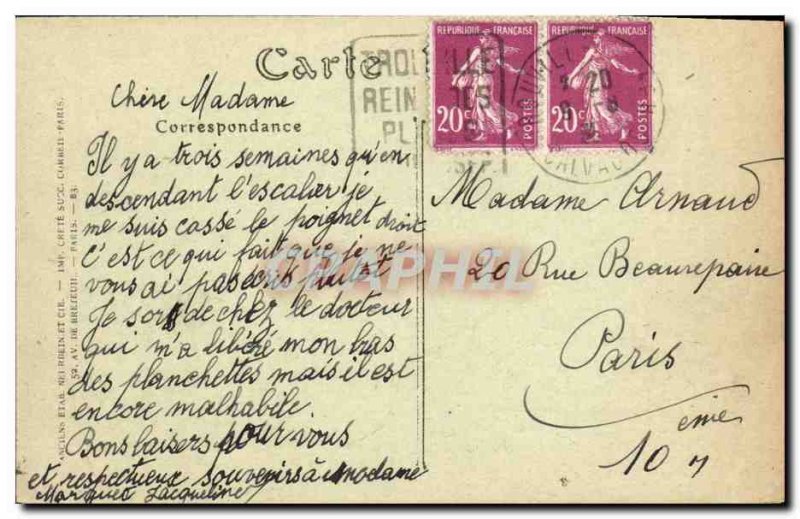 Carte
RÉPUBLIQUE FRANÇAISE
20c POSTES
RÉPUBLIQUE FRANÇAISE
20c POSTES
REIN
20
CALVADOS
Chère Madame
Correspondance
Il y a trois semaines qu'en
descendant l'escalier je
me suis cassé le poignet droit
c'est ce qui fait que je ne
vous ai pas écrit plutot
Je sors de chez le docteur
qui m'a libéré mon bras
des planchettes mais il est
encore malhabile.
Bons baisers pour vous
et respectueux souvenirs à madame
Jacqueline
Madame Arnaud
20 Rue Beaurepaire
Paris
10 eme
ANCIENS ETAB. NEURDEIN ET CIE. — IMP. CRÉTÉ SUCC. CORBEIL-PARIS.
52, AV. DE BRETEUIL. — PARIS. — 83
CPAPHIL.COM